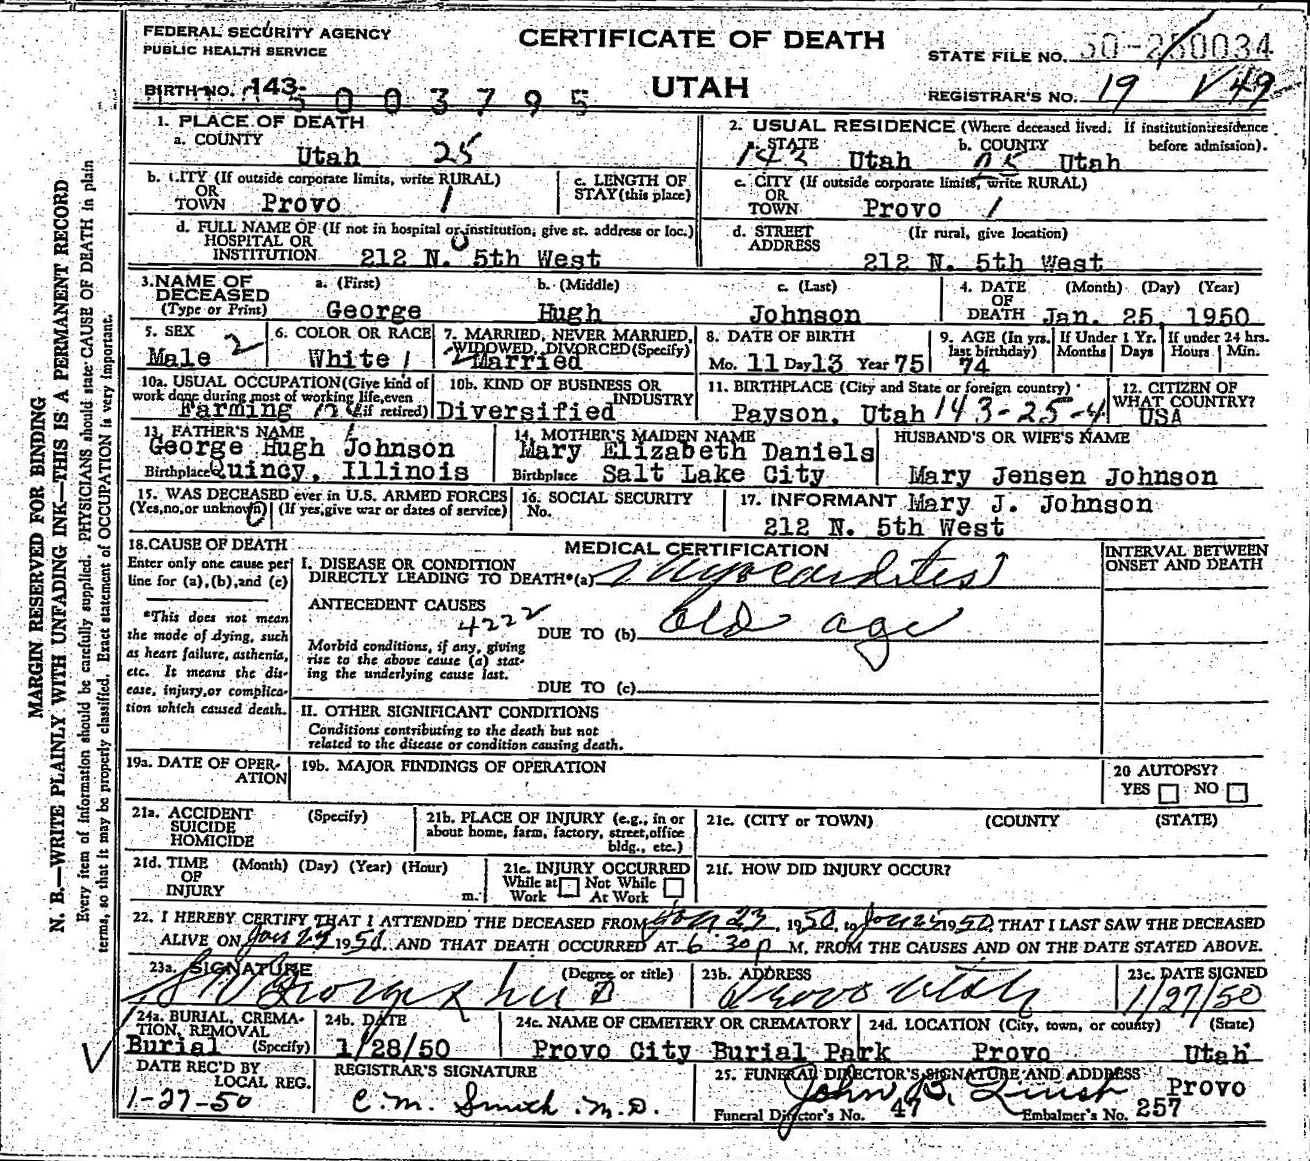 FEDERAL SECURITY AGENCY
PUBLIC HEALTH SERVICE
CERTIFICATE OF DEATH
UTAH
STATE FILE NO. 50-250034
BIRTH NO. 143-
5003795
REGISTRAR'S NO. 19 V49
1. PLACE OF DEATH
a. COUNTY
Utah 25
2. USUAL RESIDENCE (Where deceased lived. If institution: residence before admission).
a. STATE b. COUNTY
143 Utah 25 Utah
b. CITY (If outside corporate limits, write RURAL)
OR
TOWN Provo 1
c. LENGTH OF
STAY (this place)
c. CITY (If outside corporate limits, write RURAL)
OR
TOWN Provo 1
d. FULL NAME OF (If not in hospital or institution, give st. address or loc.)
HOSPITAL OR
INSTITUTION 212 N. 5th West
0
d. STREET (If rural, give location)
ADDRESS
212 N. 5th West
3. NAME OF DECEASED
(Type or Print)
a. (First) b. (Middle) c. (Last)
George Hugh Johnson
4. DATE OF DEATH (Month) (Day) (Year)
Jan. 25, 1950
5. SEX
Male 2
6. COLOR OR RACE
White 1
7. MARRIED, NEVER MARRIED,
WIDOWED, DIVORCED (Specify)
2 Married
8. DATE OF BIRTH
Mo. 11 Day 13 Year 75
9. AGE (In yrs. last birthday)
74
If Under 1 Yr. Months Days
If under 24 hrs. Hours Min.
10a. USUAL OCCUPATION (Give kind of
work done during most of working life, even
if retired)
Farming
10b. KIND OF BUSINESS OR
INDUSTRY
Diversified
11. BIRTHPLACE (City and State or foreign country)
Payson, Utah 143-25-4
12. CITIZEN OF
WHAT COUNTRY?
USA
13. FATHER'S NAME
George Hugh Johnson
Birthplace Quincy, Illinois
14. MOTHER'S MAIDEN NAME
Mary Elizabeth Daniels
Birthplace Salt Lake City
HUSBAND'S OR WIFE'S NAME
Mary Jensen Johnson
15. WAS DECEASED ever in U.S. ARMED FORCES
(Yes, no, or unknown) (If yes, give war or dates of service)
0
16. SOCIAL SECURITY
No.
17. INFORMANT Mary J. Johnson
212 N. 5th West
18. CAUSE OF DEATH
Enter only one cause per
line for (a), (b), and (c)
*This does not mean
the mode of dying, such
as heart failure, asthenia,
etc. It means the dis-
ease, injury, or complica-
tion which caused death.
MEDICAL CERTIFICATION
INTERVAL BETWEEN
ONSET AND DEATH
I. DISEASE OR CONDITION
DIRECTLY LEADING TO DEATH*(a) Myocarditis
ANTECEDENT CAUSES
4222
DUE TO (b) Old age
Morbid conditions, if any, giving
rise to the above cause (a) stat-
ing the underlying cause last.
DUE TO (c)
II. OTHER SIGNIFICANT CONDITIONS
Conditions contributing to the death but not
related to the disease or condition causing death.
19a. DATE OF OPER-
ATION
19b. MAJOR FINDINGS OF OPERATION
20 AUTOPSY?
YES NO
21a. ACCIDENT
SUICIDE
HOMICIDE
(Specify)
21b. PLACE OF INJURY (e.g., in or
about home, farm, factory, street, office
bldg., etc.)
21c. (CITY or TOWN) (COUNTY (STATE)
21d. TIME (Month) (Day) (Year) (Hour)
OF
INJURY m.
21e. INJURY OCCURRED
While at Work Not While At Work
21f. HOW DID INJURY OCCUR?
22. I HEREBY CERTIFY THAT I ATTENDED THE DECEASED FROM Jan 23, 1950, to Jan 25 1950, THAT I LAST SAW THE DECEASED
ALIVE ON Jan 1950, AND THAT DEATH OCCURRED AT 6:30 P M, FROM THE CAUSES AND ON THE DATE STATED ABOVE.
23a. SIGNATURE (Degree or title)
23b. ADDRESS
Provo Utah
23c. DATE SIGNED
1/27/50
24a. BURIAL, CREMA-
TION, REMOVAL
Burial (Specify)
24b. DATE
1/28/50
24c. NAME OF CEMETERY OR CREMATORY
Provo City Burial Park
24d. LOCATION (City, town, or county) (State)
Provo Utah
DATE REC'D BY
LOCAL REG.
1-27-50
REGISTRAR'S SIGNATURE
C. M. Smith M.D.
25. FUNERAL DIRECTOR'S SIGNATURE AND ADDRESS Provo
John B.
Funeral Director's No. 47 Embalmer's No. 257
MARGIN RESERVED FOR BINDING
N. B.—WRITE PLAINLY WITH UNFADING INK—THIS IS A PERMANENT RECORD
Every item of information should be carefully supplied. PHYSICIANS should state CAUSE OF DEATH in plain
terms, so that it may be properly classified. Exact statement of OCCUPATION is very important.